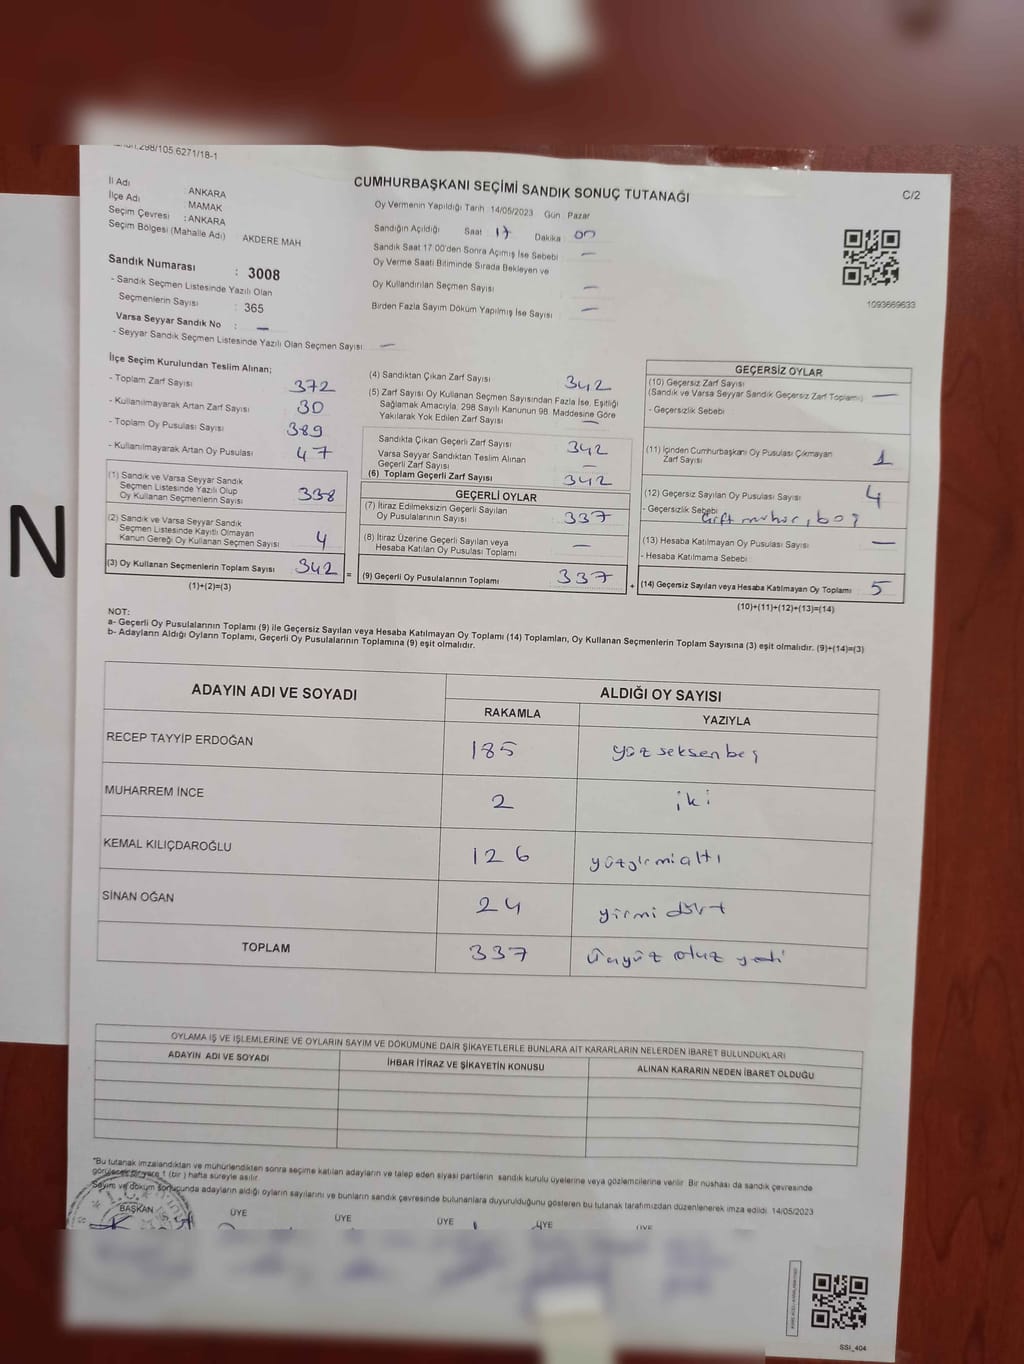 298/105.6271/18-1
CUMHURBAŞKANI SEÇİMİ SANDIK SONUÇ TUTANAĞI
C/2
İl Adı : ANKARA
İlçe Adı : MAMAK
Seçim Çevresi : ANKARA
Seçim Bölgesi (Mahalle Adı) AKDERE MAH
Sandık Numarası : 3008
- Sandık Seçmen Listesinde Yazılı Olan
Seçmenlerin Sayısı : 365
Varsa Seyyar Sandık No : —
- Seyyar Sandık Seçmen Listesinde Yazılı Olan Seçmen Sayısı —
Oy Vermenin Yapıldığı Tarih 14/05/2023 Gün Pazar
Sandığın Açıldığı Saat 17 Dakika 00
Sandık Saat 17 00'den Sonra Açımış İse Sebebi —
Oy Verme Saati Bitiminde Sırada Bekleyen ve
Oy Kullandırılan Seçmen Sayısı —
Birden Fazla Sayım Döküm Yapılmış İse Sayısı —
1093669633
İlçe Seçim Kurulundan Teslim Alınan;
- Toplam Zarf Sayısı 372
- Kullanılmayarak Artan Zarf Sayısı 30
- Toplam Oy Pusulası Sayısı 389
- Kullanılmayarak Artan Oy Pusulası 47
(1) Sandık ve Varsa Seyyar Sandık
Seçmen Listesinde Yazılı Olup
Oy Kullanan Seçmenlerin Sayısı 338
(2) Sandık ve Varsa Seyyar Sandık
Seçmen Listesinde Kayıtlı Olmayan
Kanun Gereği Oy Kullanan Seçmen Sayısı 4
(3) Oy Kullanan Seçmenlerin Toplam Sayısı 342 =
(1)+(2)=(3)
(4) Sandıktan Çıkan Zarf Sayısı 342
(5) Zarf Sayısı Oy Kullanan Seçmen Sayısından Fazla İse, Eşitliği
Sağlamak Amacıyla, 298 Sayılı Kanunun 98. Maddesine Göre
Yakılarak Yok Edilen Zarf Sayısı —
Sandıkta Çıkan Geçerli Zarf Sayısı 342
Varsa Seyyar Sandıktan Teslim Alınan
Geçerli Zarf Sayısı —
(6) Toplam Geçerli Zarf Sayısı 342
GEÇERLİ OYLAR
(7) İtiraz Edilmeksizin Geçerli Sayılan
Oy Pusulalarının Sayısı 337
(8) İtiraz Üzerine Geçerli Sayılan veya
Hesaba Katılan Oy Pusulası Toplamı —
(9) Geçerli Oy Pusulalarının Toplamı 337 +
GEÇERSİZ OYLAR
(10) Geçersiz Zarf Sayısı
(Sandık ve Varsa Seyyar Sandık Geçersiz Zarf Toplamı) —
- Geçersizlik Sebebi
(11) İçinden Cumhurbaşkanı Oy Pusulası Çıkmayan
Zarf Sayısı 1
(12) Geçersiz Sayılan Oy Pusulası Sayısı 4
- Geçersizlik Sebebi çift mühür, boş
(13) Hesaba Katılmayan Oy Pusulası Sayısı —
- Hesaba Katılmama Sebebi
(14) Geçersiz Sayılan veya Hesaba Katılmayan Oy Toplamı 5
(10)+(11)+(12)+(13)=(14)
NOT:
a- Geçerli Oy Pusulalarının Toplamı (9) ile Geçersiz Sayılan veya Hesaba Katılmayan Oy Toplamı (14) Toplamları, Oy Kullanan Seçmenlerin Toplam Sayısına (3) eşit olmalıdır. (9)+(14)=(3)
b- Adayların Aldığı Oyların Toplamı, Geçerli Oy Pusulalarının Toplamına (9) eşit olmalıdır.
ADAYIN ADI VE SOYADI ALDIĞI OY SAYISI
RAKAMLA YAZIYLA
RECEP TAYYİP ERDOĞAN 185 yüz seksen beş
MUHARREM İNCE 2 iki
KEMAL KILIÇDAROĞLU 126 yüzyirmi altı
SİNAN OĞAN 24 yirmi dört
TOPLAM 337 üçyüz otuz yedi
OYLAMA İŞ VE İŞLEMLERİNE VE OYLARIN SAYIM VE DÖKÜMÜNE DAİR ŞİKAYETLERLE BUNLARA AİT KARARLARIN NELERDEN İBARET BULUNDUKLARI
ADAYIN ADI VE SOYADI İHBAR İTİRAZ VE ŞİKAYETİN KONUSU ALINAN KARARIN NEDEN İBARET OLDUĞU
"Bu tutanak imzalandıktan ve mühürlendikten sonra seçime katılan adayların ve talep eden siyasi partilerin sandık kurulu üyelerine veya gözlemcilerine verilir. Bir nüshası da sandık çevresinde
görülecek bir yere 1 (bir) hafta süreyle asılır.
Sayım ve döküm sonucunda adayların aldığı oyların sayılarını ve bunların sandık çevresinde bulunanlara duyurulduğunu gösteren bu tutanak tarafımızdan düzenlenerek imza edildi. 14/05/2023
BAŞKAN ÜYE ÜYE ÜYE ÜYE ÜYE
SSİ_404
N